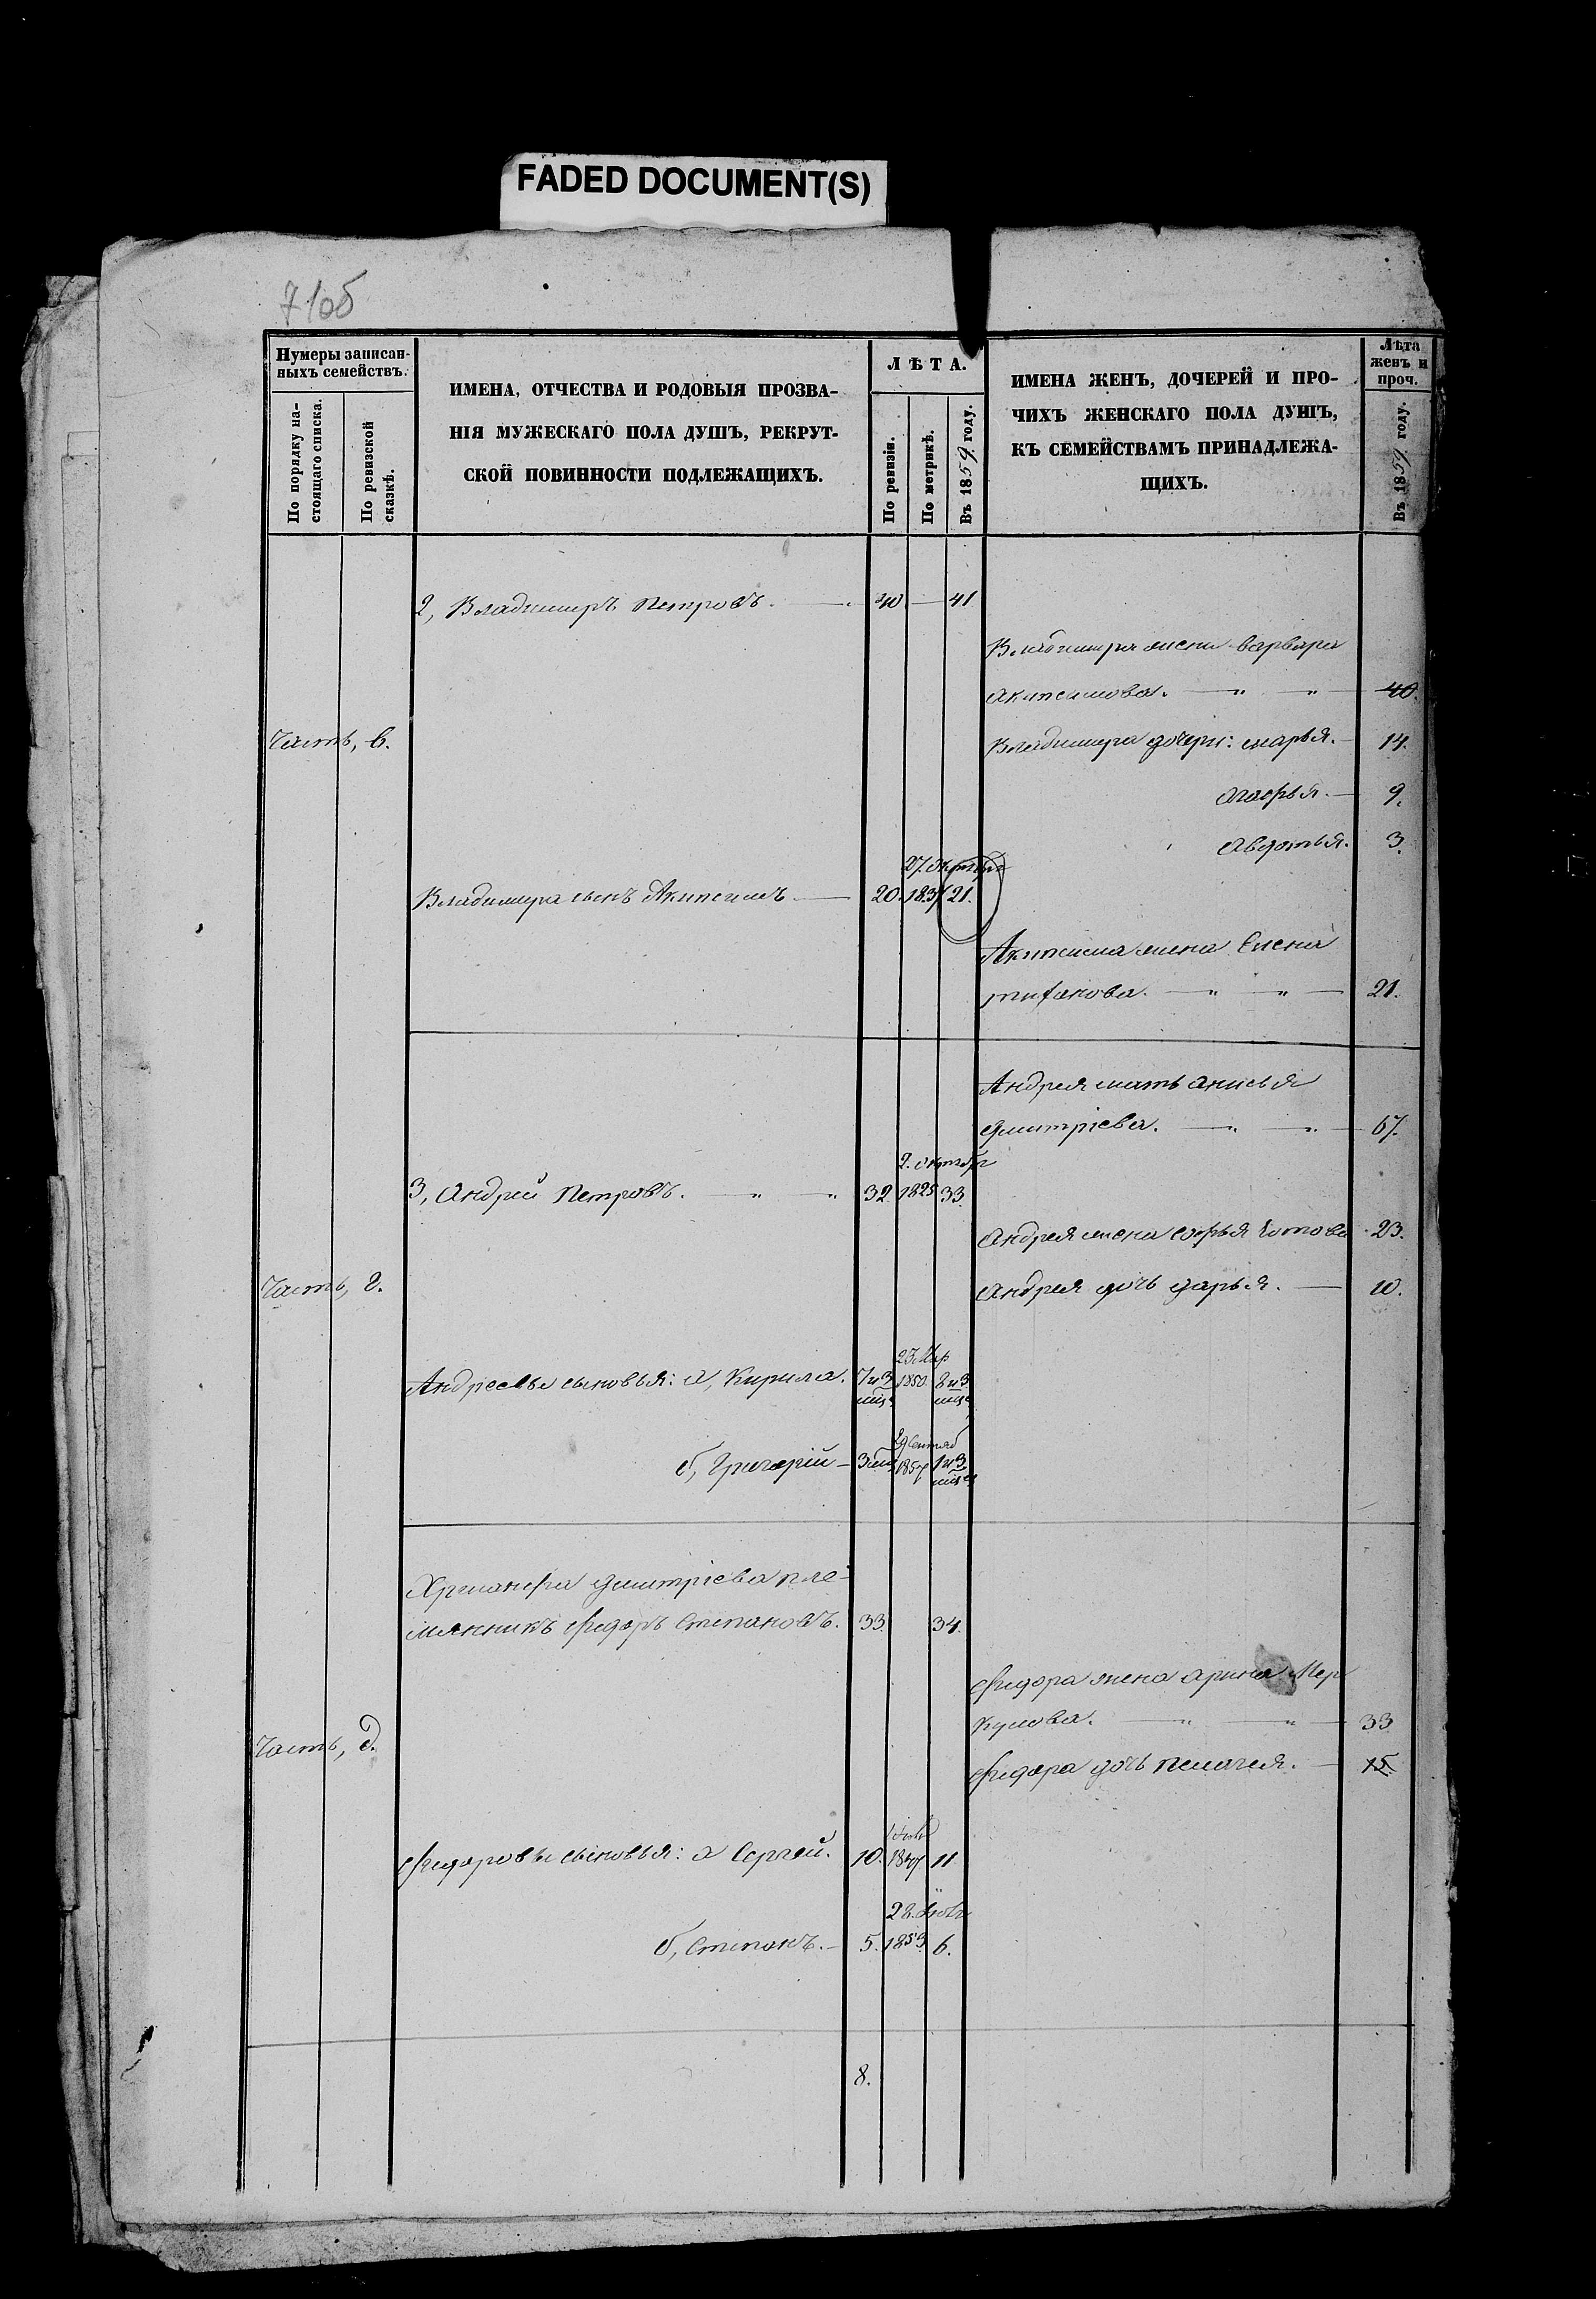 FADED DOCUMENT(S)
7 об
Нумеры записан-
ныхъ семействъ.
По порядку на-
стоящаго списка.
По ревизской
сказкѣ.
ИМЕНА, ОТЧЕСТВА И РОДОВЫЯ ПРОЗВА-
НІЯ МУЖЕСКАГО ПОЛА ДУШЪ, РЕКРУТ-
СКОЙ ПОВИННОСТИ ПОДЛЕЖАЩИХЪ.
ЛѢТА.
По ревизіи.
По метрикѣ.
Въ 1859 году.
ИМЕНА ЖЕНЪ, ДОЧЕРЕЙ И ПРО-
ЧИХЪ ЖЕНСКАГО ПОЛА ДУШЪ,
КЪ СЕМЕЙСТВАМЪ ПРИНАДЛЕЖА-
ЩИХЪ.
Лѣта
женъ и
проч.
Въ 1859 году.
2, Владимиръ Петровъ. 40. — 41
Владимира жена варвара
акинсимова. — " — " — 40.
Часть, в.
Владимира дочери: марья. — 14.
Агафья. — 9.
Авдотья. 3.
27. Октября
Владимира сынъ Акинсимъ — 20. 1837 21.
Акинсима жена Елена
21.
Андрея мать анисья
дмитріева. — " — " — 67.
2. октябр
3, Андрей Петровъ. — " — " 32. 1825 33.
Андрея жена софья 23.
Часть, г.
Андрея дочь дарья. — 10.
23 Мар
Андреевы сыновья: а, Кирила. 7 и 3 1850. 8 и 3
мѣс. мѣся
29 Сентяб
б, Григорій — 3 мѣ 1857 1 и 3
мѣся
дмитріева пле-
мянникъ Федоръ Степановъ. 33. 34.
Федора жена арина Мер
кулова. — " — " — 33
Часть, д.
Федора дочь пелагея. — 15.
Федоровы сыновья: а Сергей. 10. 1847 11
28.
б, Степанъ. — 5. 1853 6.
8.